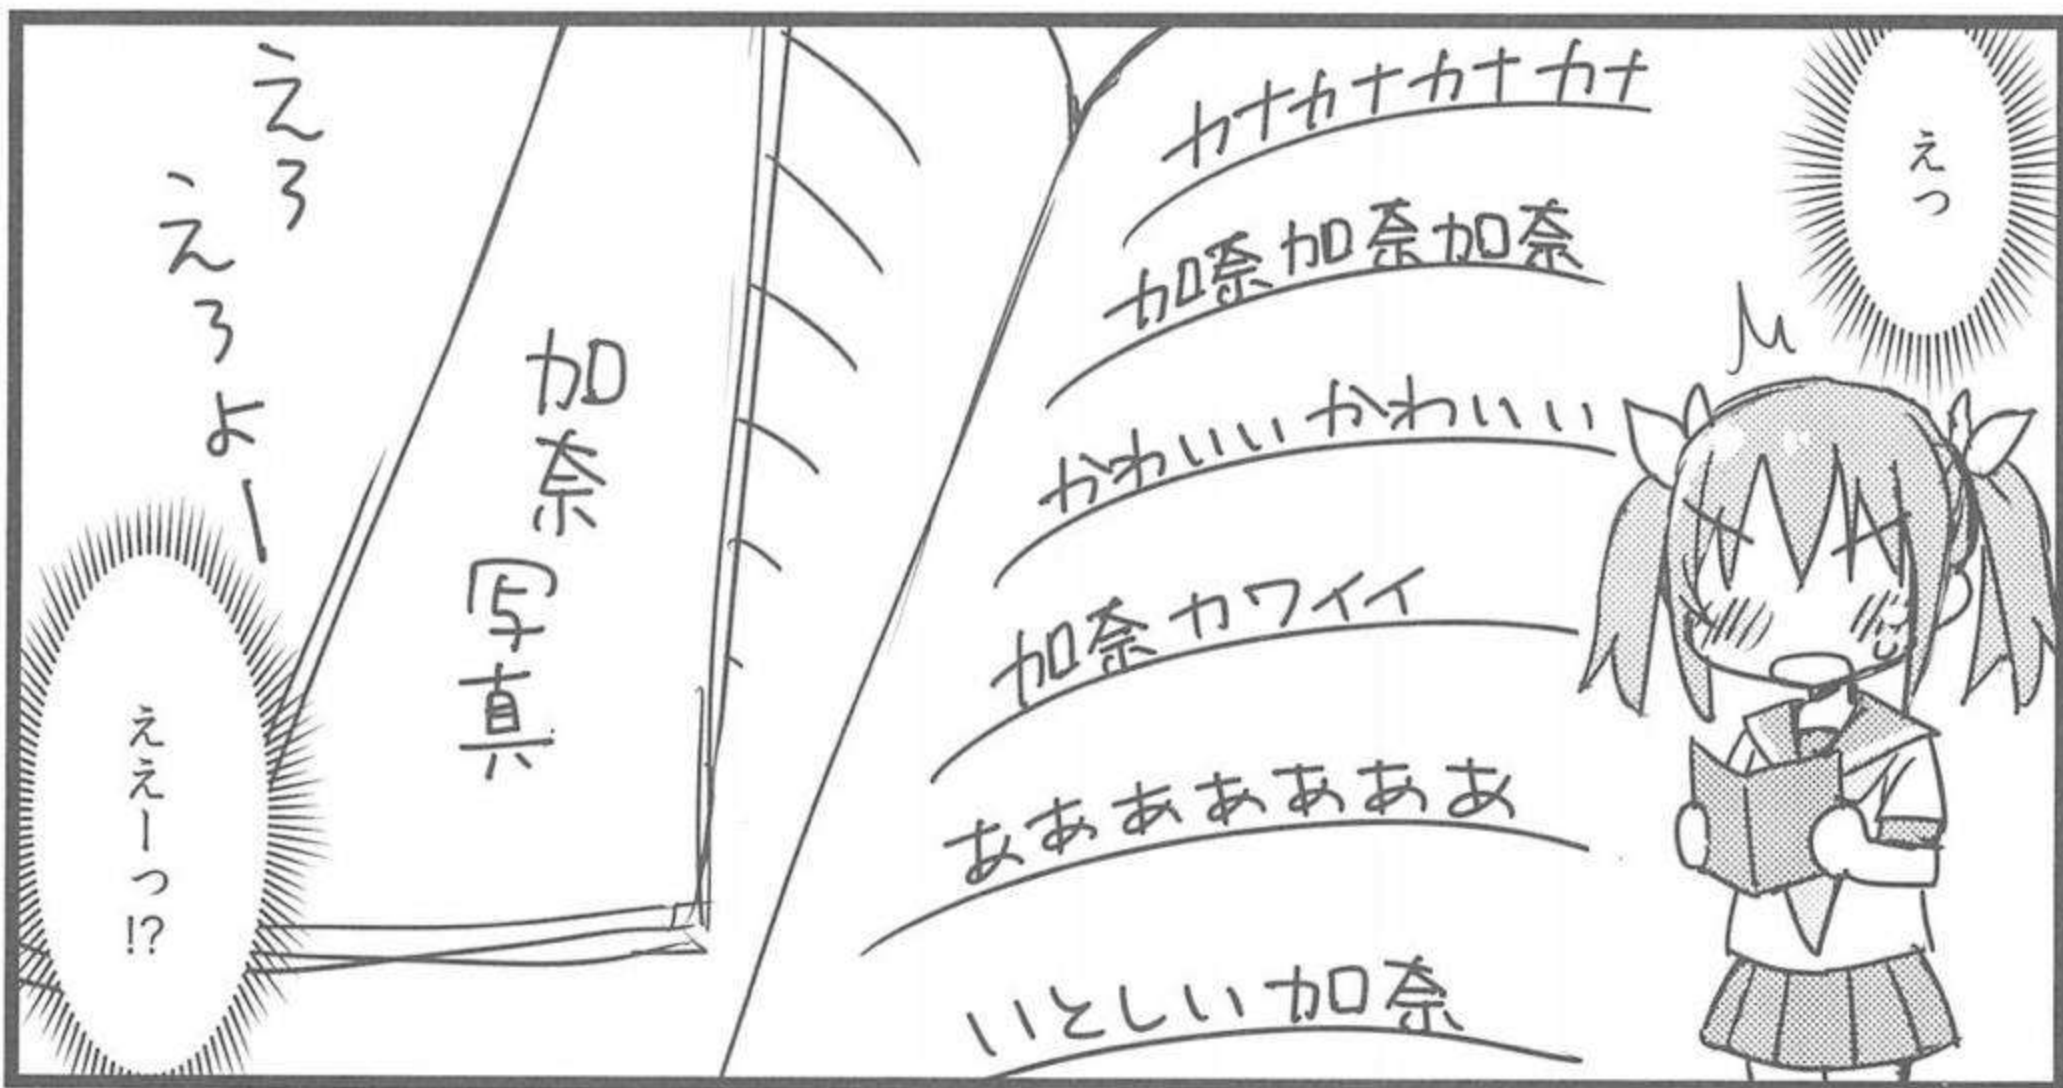 えっ
カナカナカナカナ
加奈加奈加奈
かわいいかわいい
加奈カワイイ
あああああああ
いとしい加奈
加奈
写真
えろ
えろよー
ええーっ!?